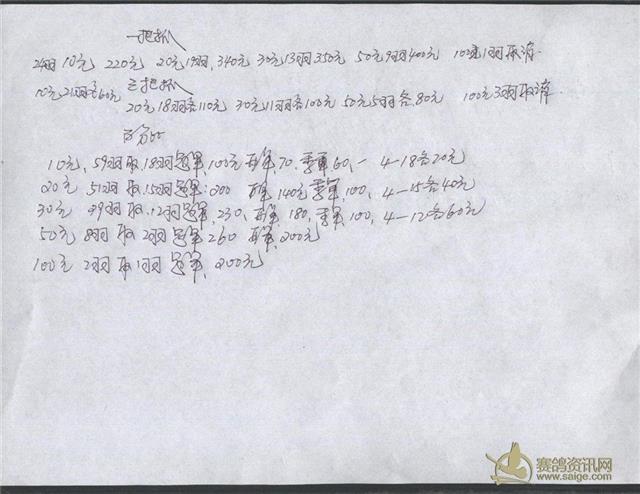 一把抓
24羽10元 220元 20元19羽,340元 30元13羽350元 50元9羽400元 100元1羽取消.
三把抓
10元21羽各60元
20元18羽各110元 30元11羽各100元 50元5羽各.80元 100元3羽取消
百分比
10元、59羽取18羽冠军、100元 亚军、70. 季军60、一 4-18各20元
20元 51羽取15羽冠军:200 亚军140元季军、100、4-15各40元
30元 39羽取12羽冠军、230、亚军180、季军、100、4-12各60元
50元 8羽取2羽冠军:260 亚军、200元
100元 2羽取1羽 冠军、200元
赛鸽资讯网
www.saige.com